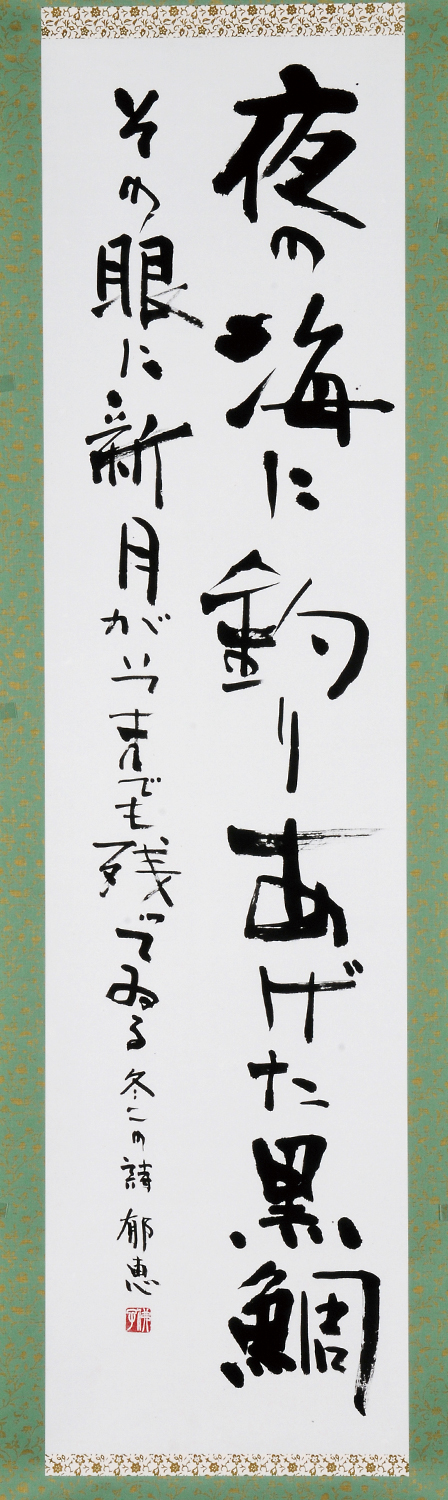 夜の海に釣りあげた黒鯛
その眼に新月がいつまでも残つてゐる 冬二の詩 郁恵